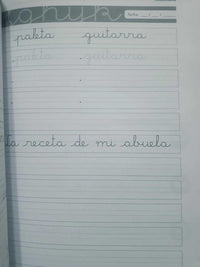 fecha:
paleta guitarra
paleta guitarra
la receta de mi abuela